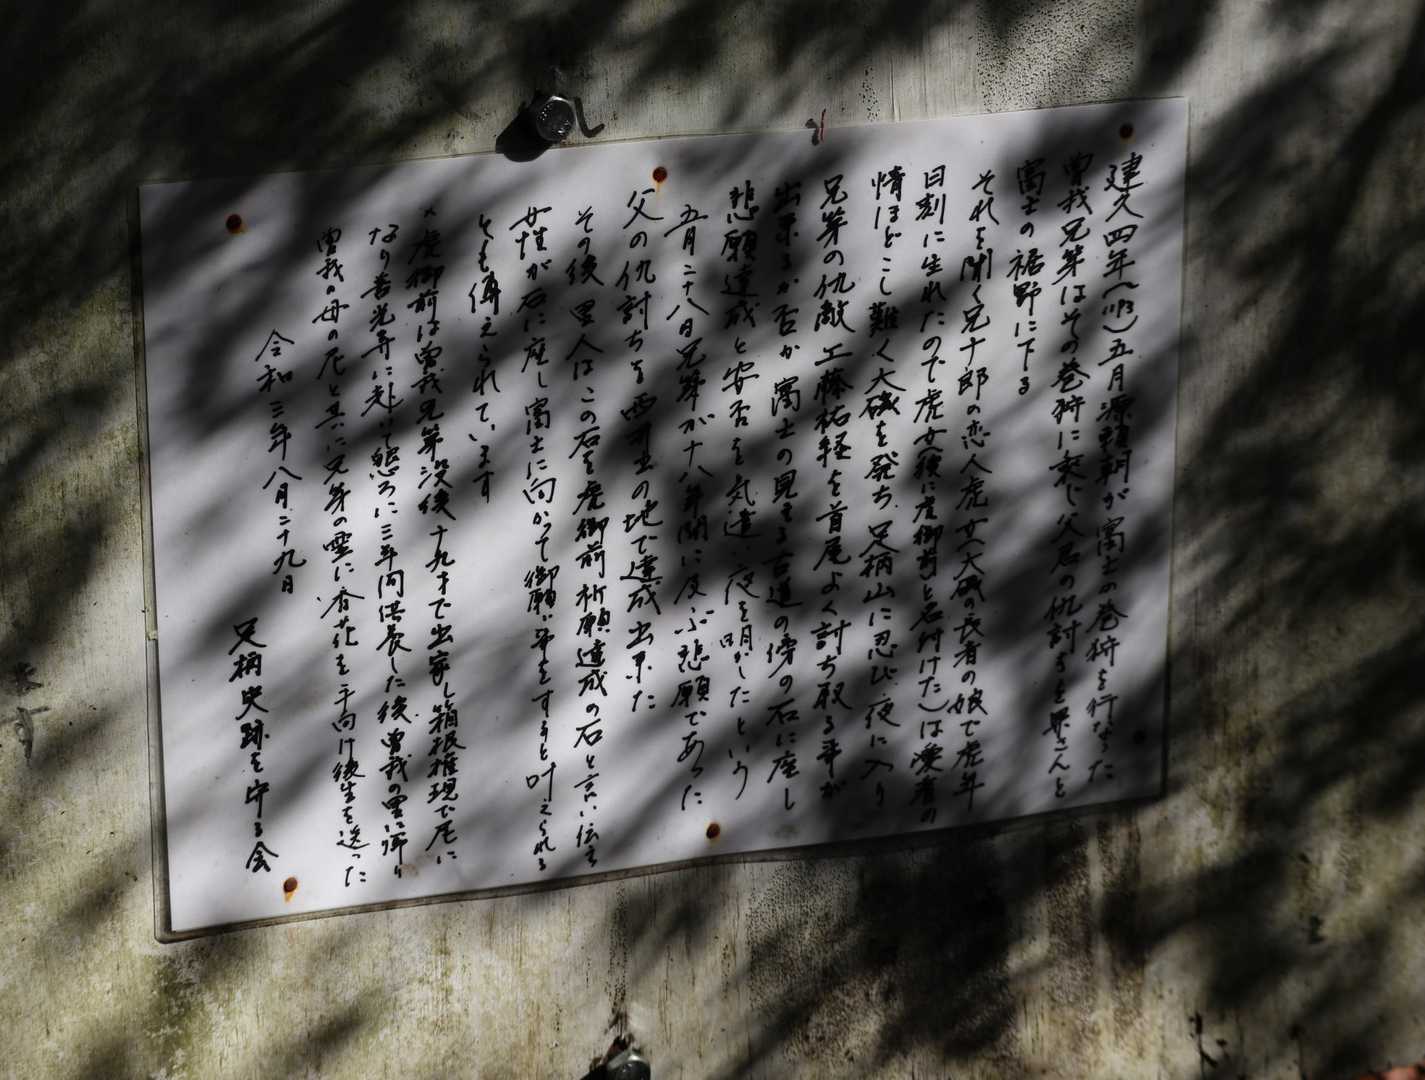 建久四年(1193)五月源頼朝が富士の巻狩を行なった
曽我兄弟はその巻狩に乗じ父君の仇討ちを果さんと
富士の裾野に下る
それを聞く兄十郎の恋人虎女(大磯の長者の娘で虎年
日刻に生れたので虎女後に虎御前と名付けた)は愛着の
情ほどこし難く大磯を発ち足柄山に忍び夜に入り
兄弟の仇敵工藤祐経を首尾よく討ち取る事が
出来るか否か富士の見える古道の傍の石に座し
悲願達成と安否を気遣い夜を明かしたという
五月二十八日兄弟が十八年間に及ぶ悲願であった
父の仇討ちを この地で達成出来た
その後里人はこの石を虎御前祈願達成の石と言い伝え
女性が石に座し富士に向かって御願い事をすると叶えられる
とも傳えられています
×虎御前は曽我兄弟没後十九才で出家し箱根権現で尼に
なり善光寺に赴いて懇ろに三年間供養した後曽我の里に帰り
曽我の母の尼と共に兄弟の霊に香花を手向け後生を送った
令和三年八月二十九日
足柄史跡を守る会